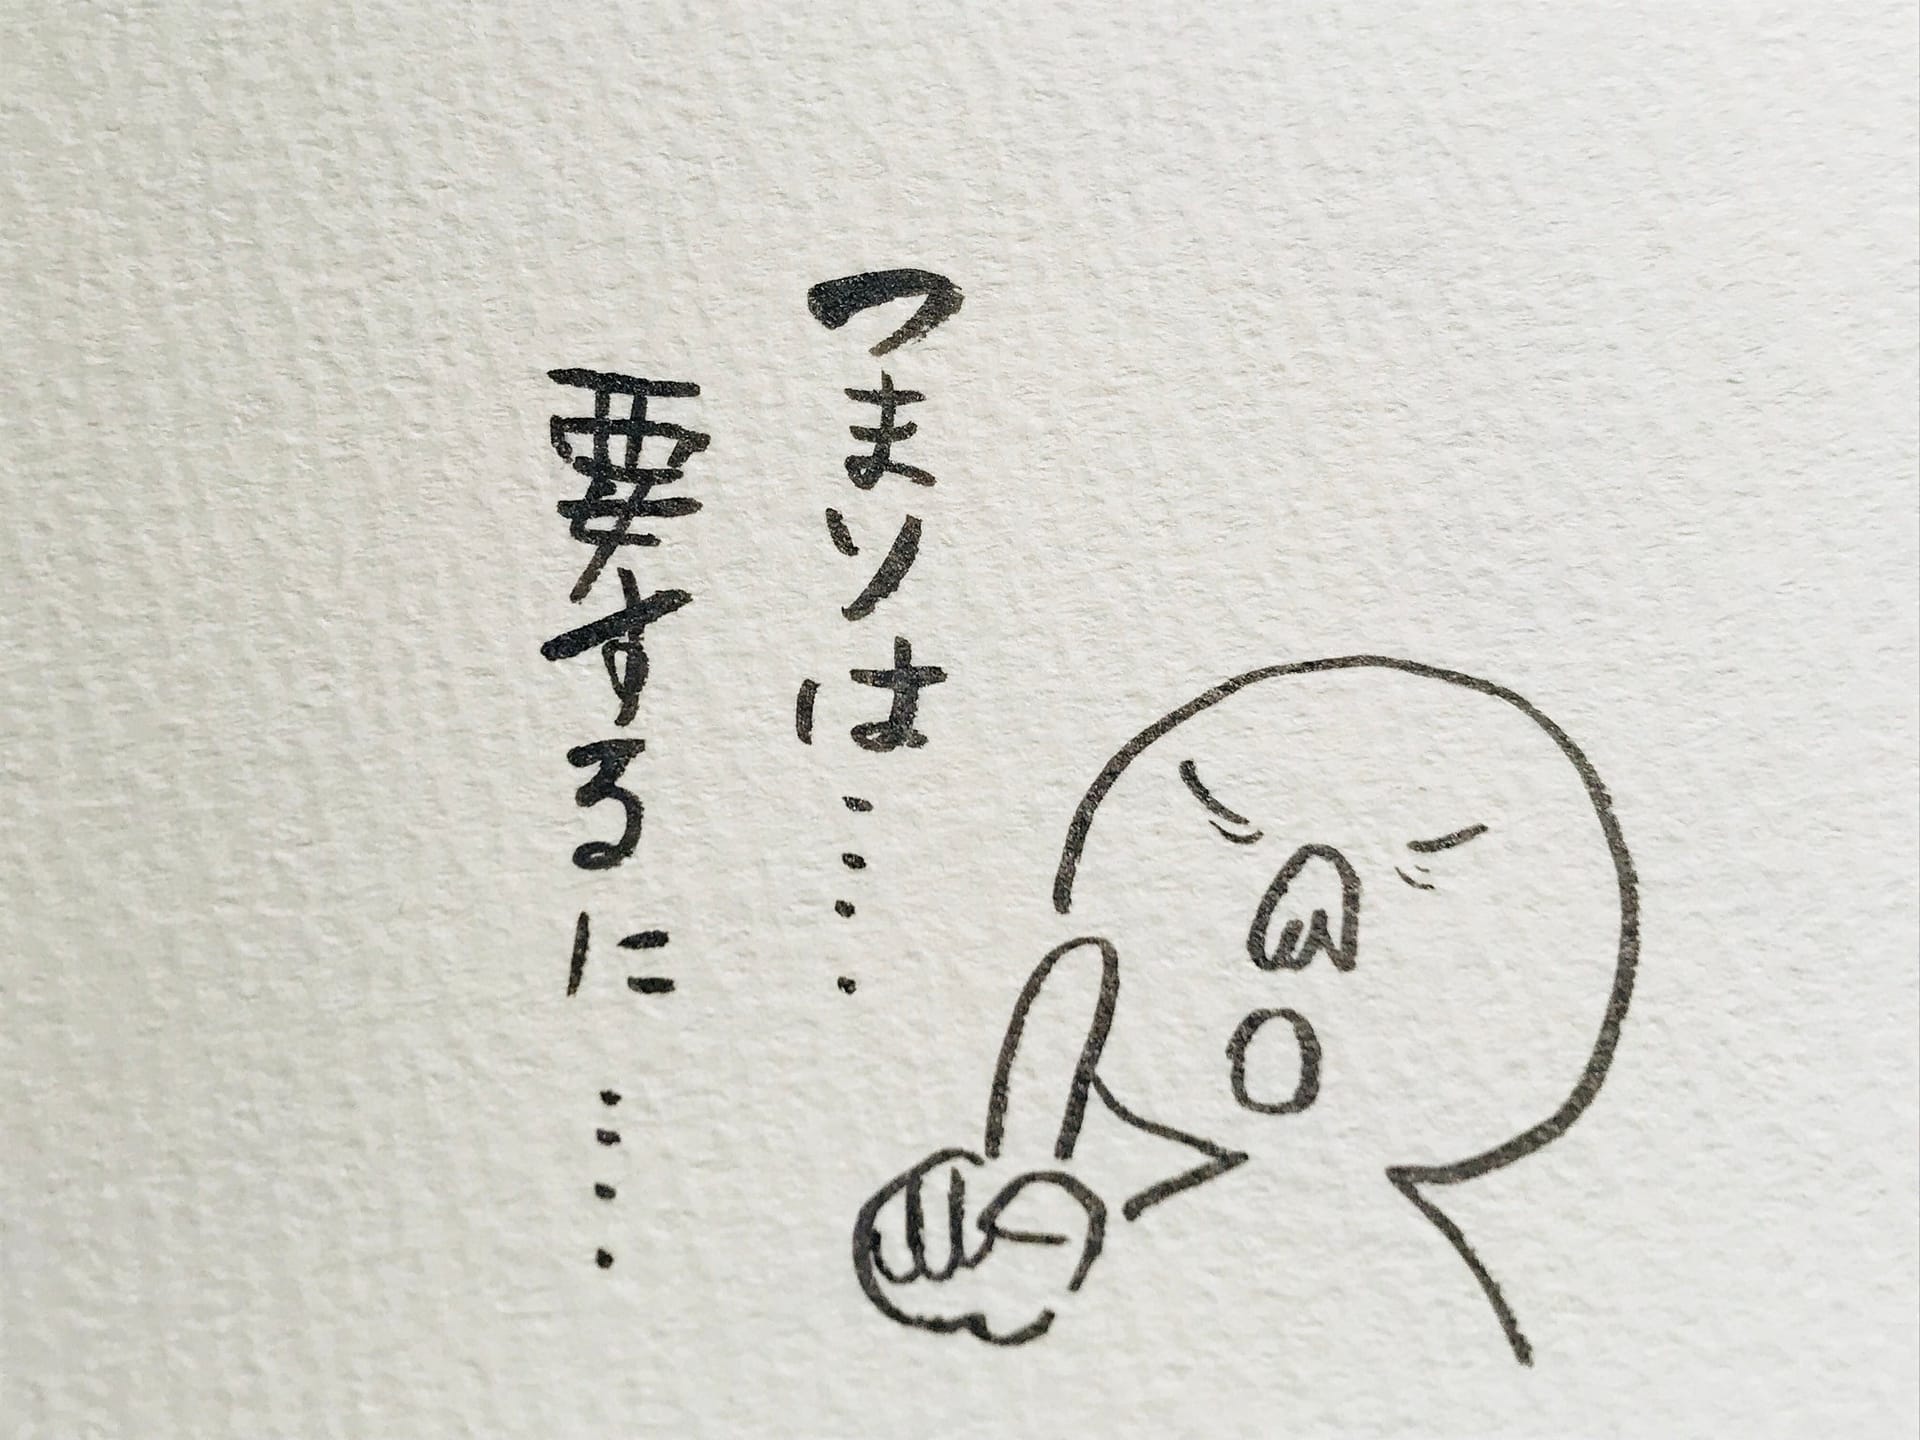 つまりは‥‥
要するに‥‥